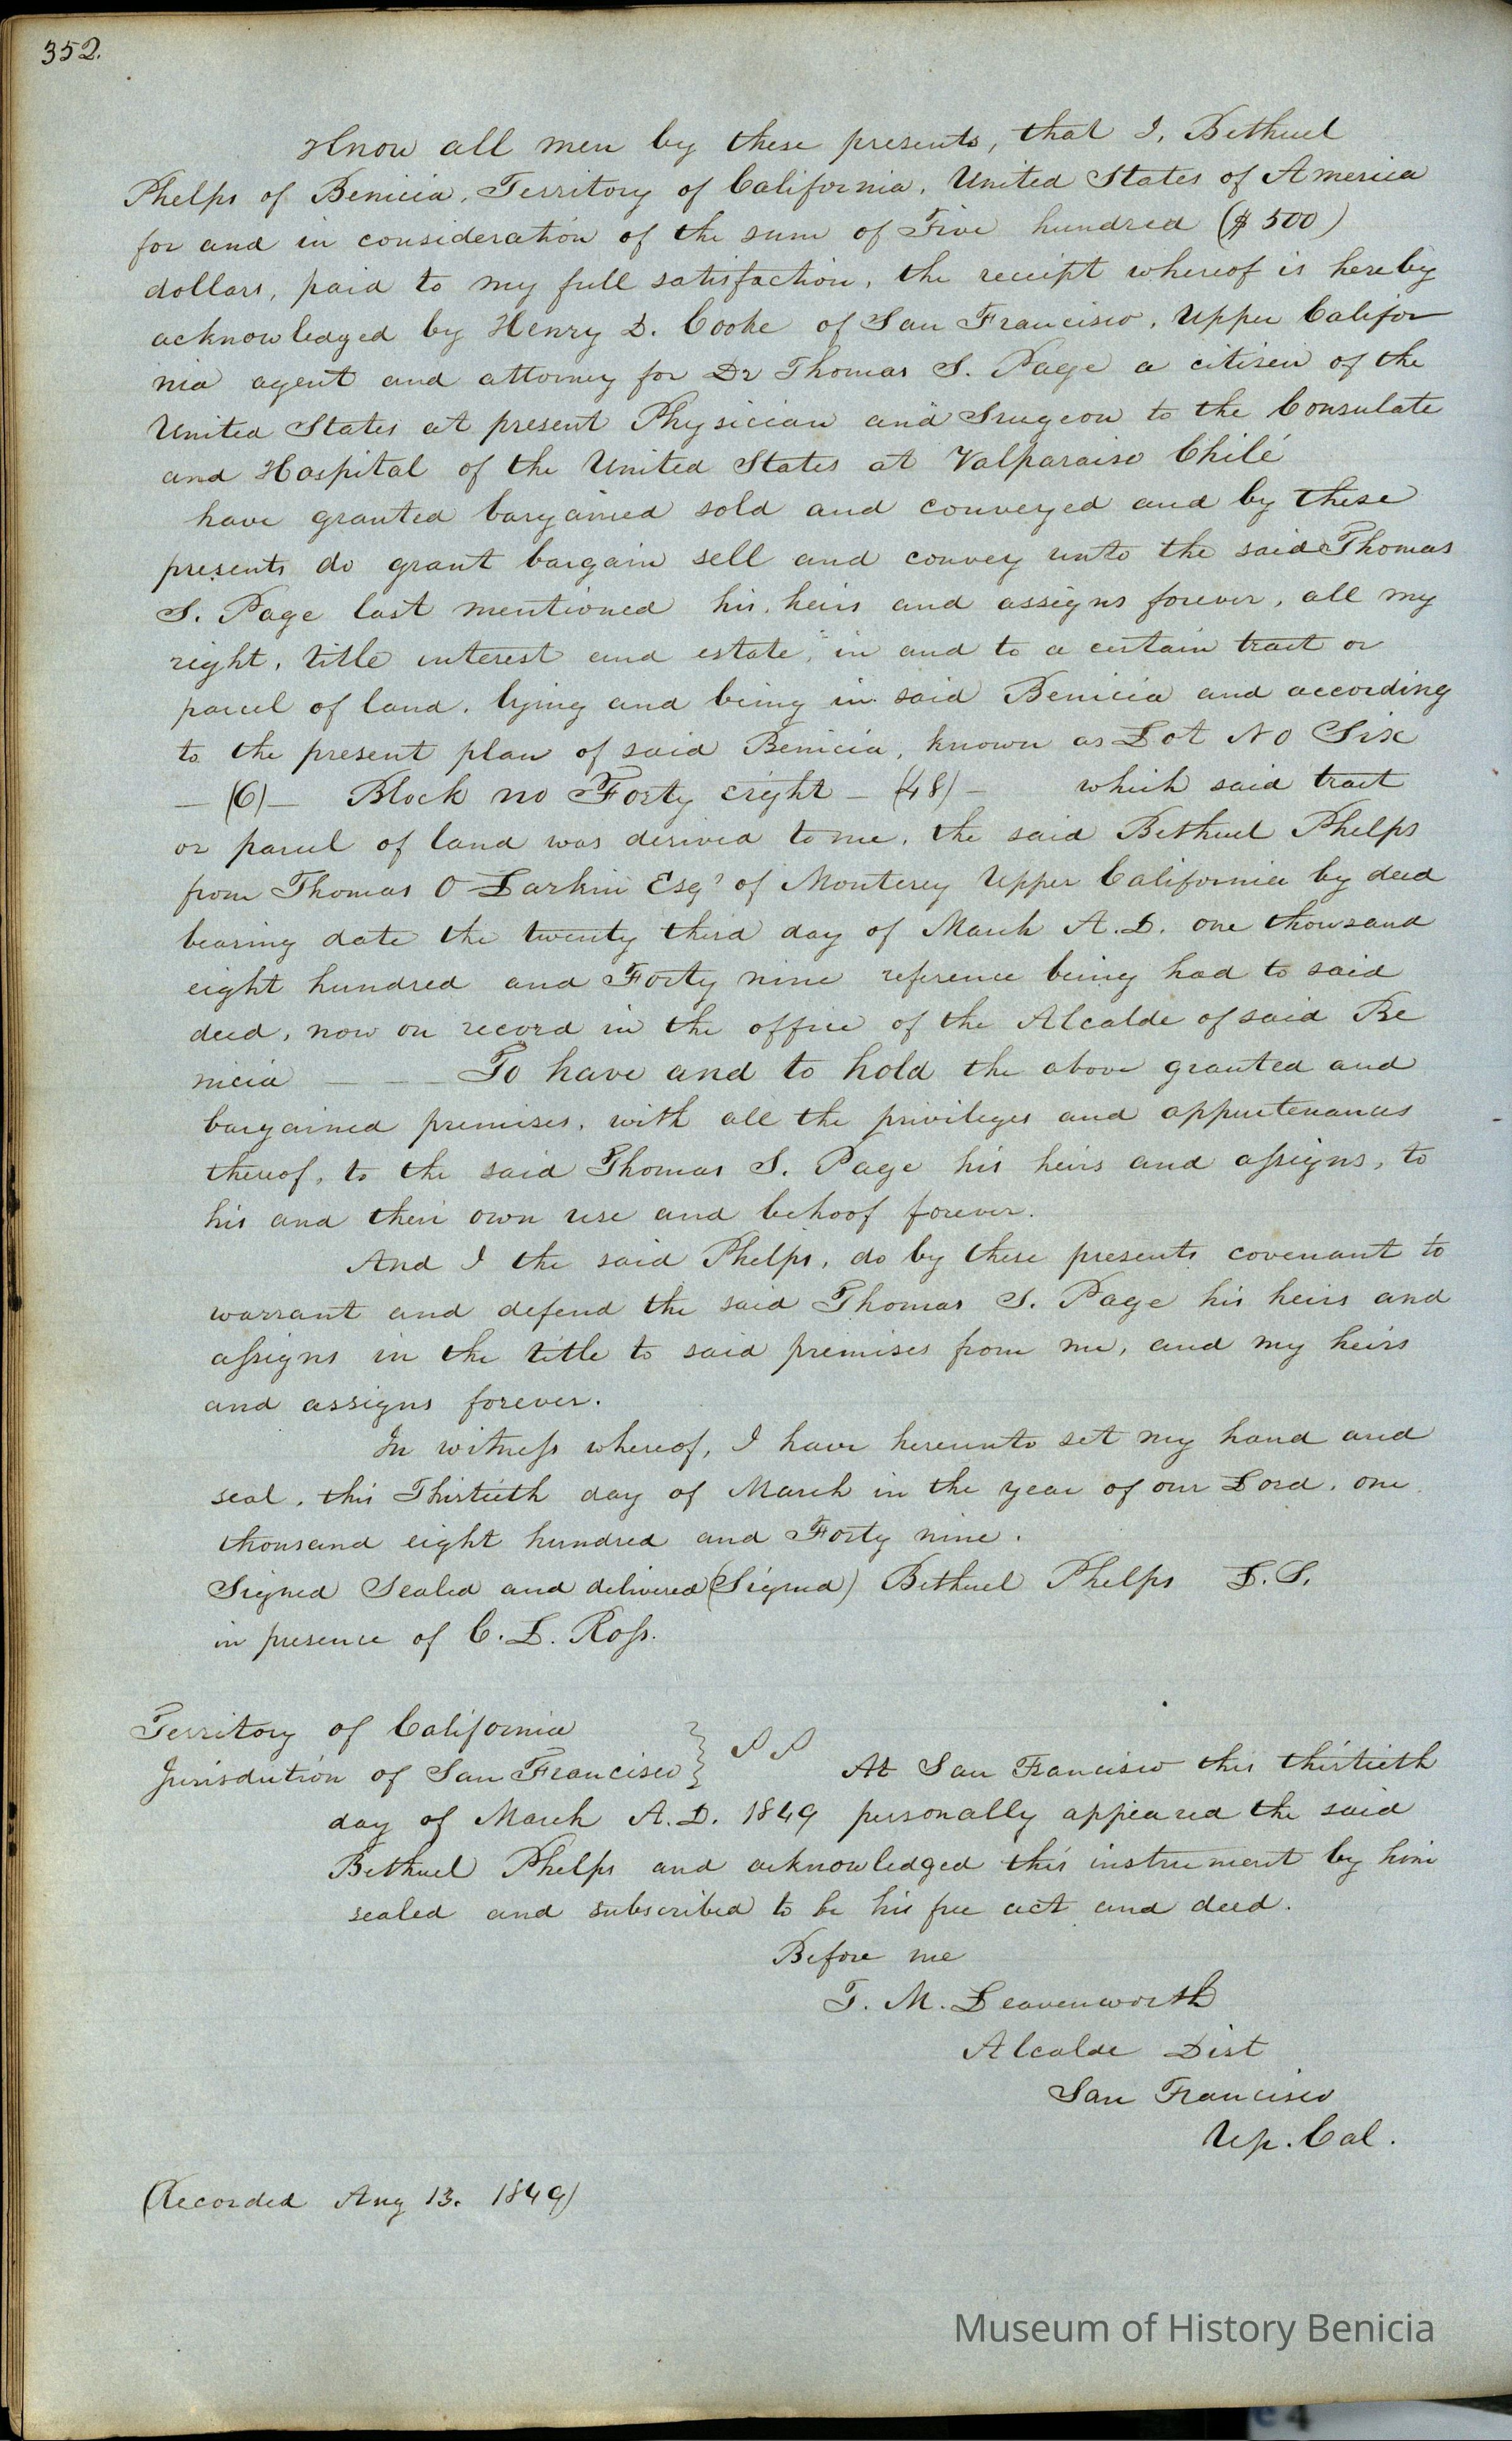 352.
Know all men by these presents, that I, Bethuel
Phelps of Benicia, Territory of California, United States of America
for and in consideration of the sum of Five hundred ($500)
dollars, paid to my full satisfaction, the receipt whereof is hereby
acknowledged by Henry D. Cooke of San Francisco, Upper Califor
nia agent and attorney for Dr Thomas S. Page a citisen of the
United States at present Physician and Srugeon to the Consulate
and Hospital of the United States at Valparaiso Chilé
have granted bargained sold and conveyed and by these
presents do grant bargain sell and convey unto the said Thomas
S. Page last mentioned his, heirs and assigns forever, all my
right, title interest and estate, in and to a certain tract or
parcel of land, lying and being in said Benicia and according
to the present plan of said Benicia, known as Lot No Six
— (6) — Block no Forty eight — (48) — which said tract
or parcel of land was derived to me, the said Bethuel Phelps
from Thomas O Larkin Esqr of Monterey Upper California by deed
bearing date the twenty third day of March A.D. one thousand
eight hundred and Forty nine reference being had to said
deed, now on record in the office of the Alcalde of said Be
nicia — — — To have and to hold the above granted and
bargained premises, with all the privileges and appurtenances
thereof, to the said Thomas S. Page his heirs and assigns, to
his and their own use and behoof forever.
And I the said Phelps, do by these presents covenant to
warrant and defend the said Thomas S. Page his heirs and
assigns in the title to said premises from me, and my heirs
and assigns forever.
In witness whereof, I have hereunto set my hand and
seal, this Thirtieth day of March in the year of our Lord, one
thousand eight hundred and Forty nine.
Signed Sealed and delivered (Signed) Bethuel Phelps L.S.
in presence of C. L. Ross.
Territory of California
Jurisdution of San Francisco } SS At San Francisco this thirtieth
day of March A.D. 1849 personally appeared the said
Bethuel Phelps and acknowledged this instrument by him
sealed and subscribed to be his free act and deed.
Before me
T. M. Leavenworth
Alcalde Dist
San Francisco
Up. Cal.
(Recorded Aug 13. 1849)
Museum of History Benicia
e 4